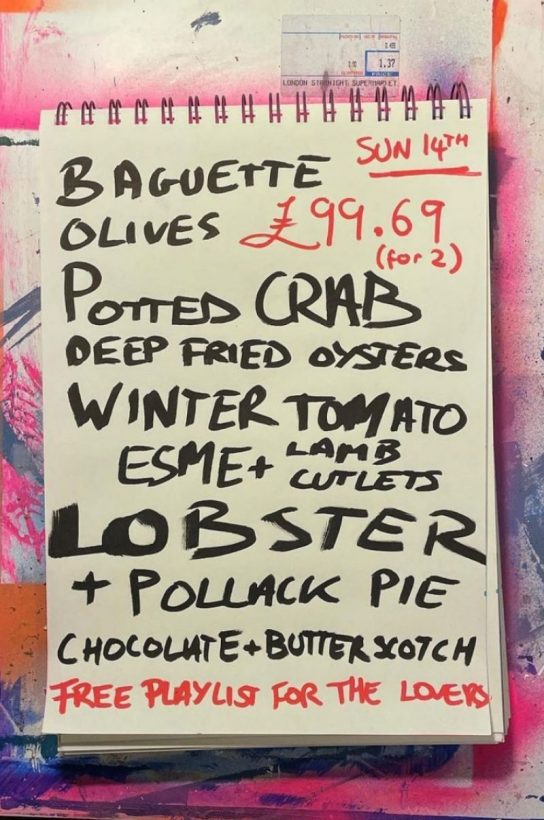 1.37
LONDON STRAIGHT SUPERMARKET
SUN 14TH
BAGUETTE
OLIVES £99.69
(for 2)
POTTED CRAB
DEEP FRIED OYSTERS
WINTER TOMATO
ESME + LAMB CUTLETS
LOBSTER
+ POLLACK PIE
CHOCOLATE + BUTTERSCOTCH
FREE PLAYLIST FOR THE LOVERS